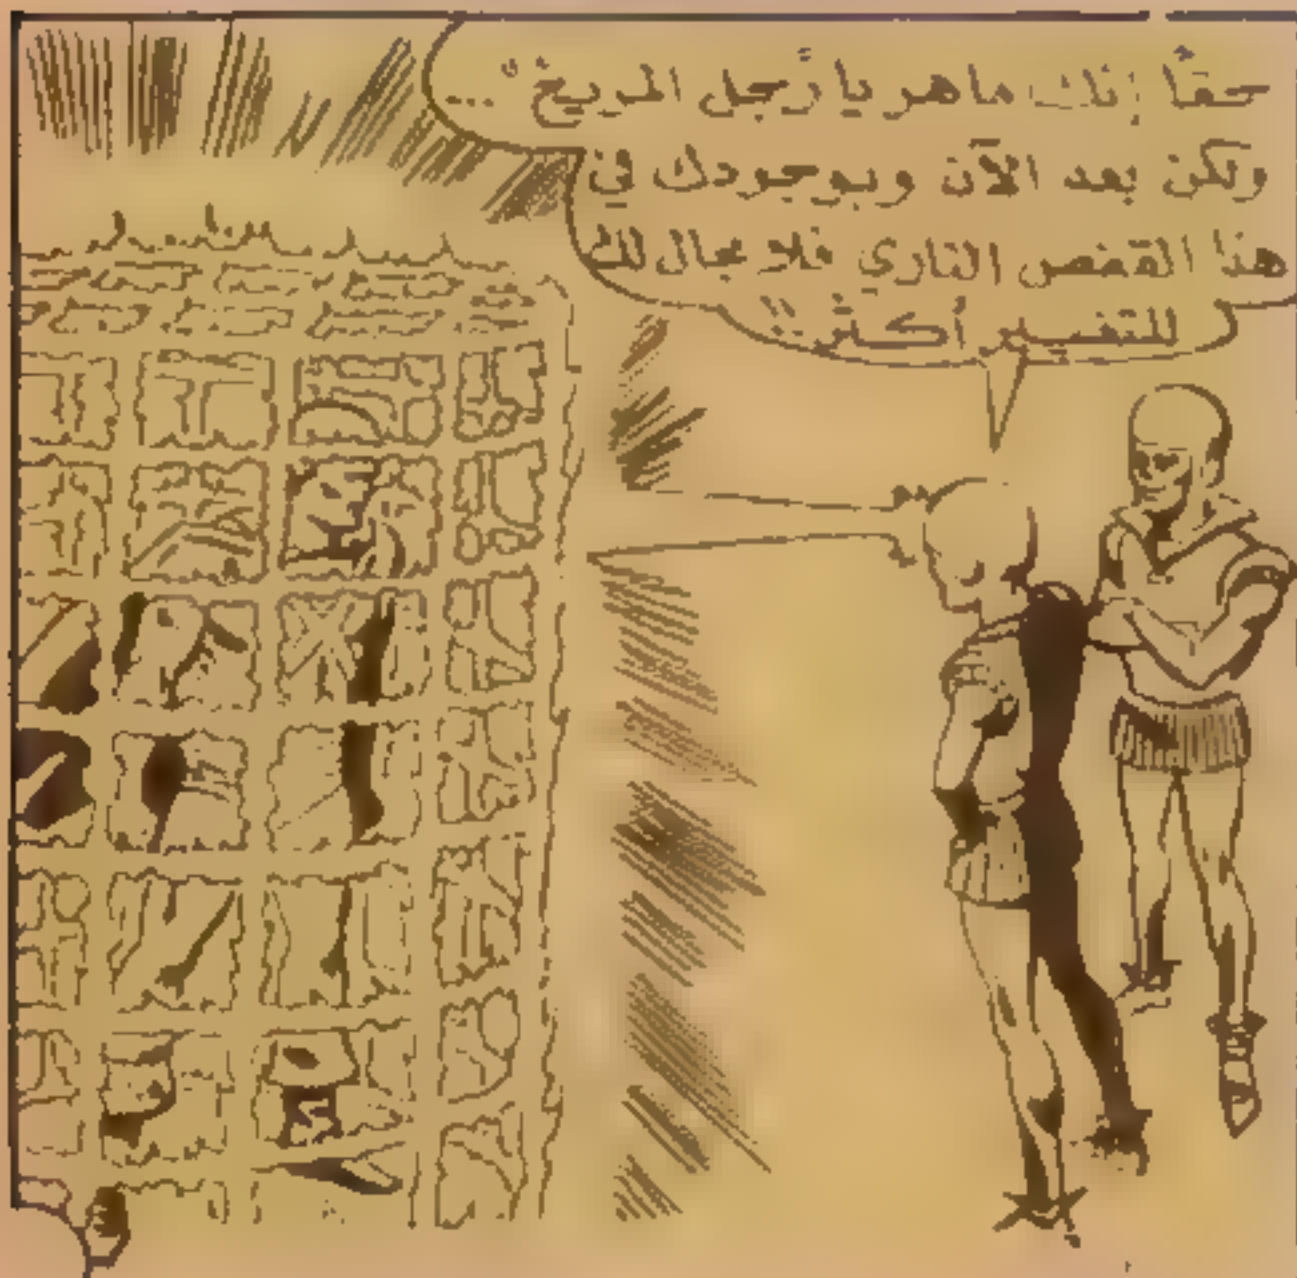 حقًا إنك ماهر يا "رجل المريخ" ...
ولكن بعد الآن وبوجودك في
هذا القفص الناري فلا مجال لك
للتغيير أكثر !!